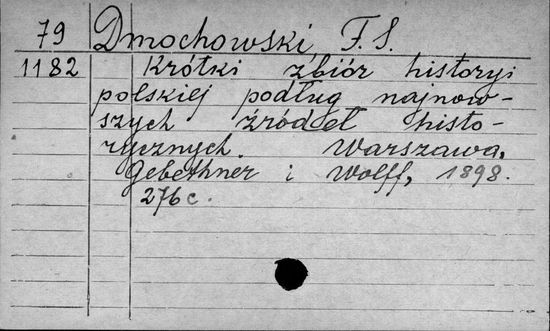 79 Dmochowski, F. S.
1182 Krótki zbiór historyi
polskiej podług najnow-
szych źródeł histo-
rycznych. Warszawa,
Gebethner i Wolff, 1898.
276 c.